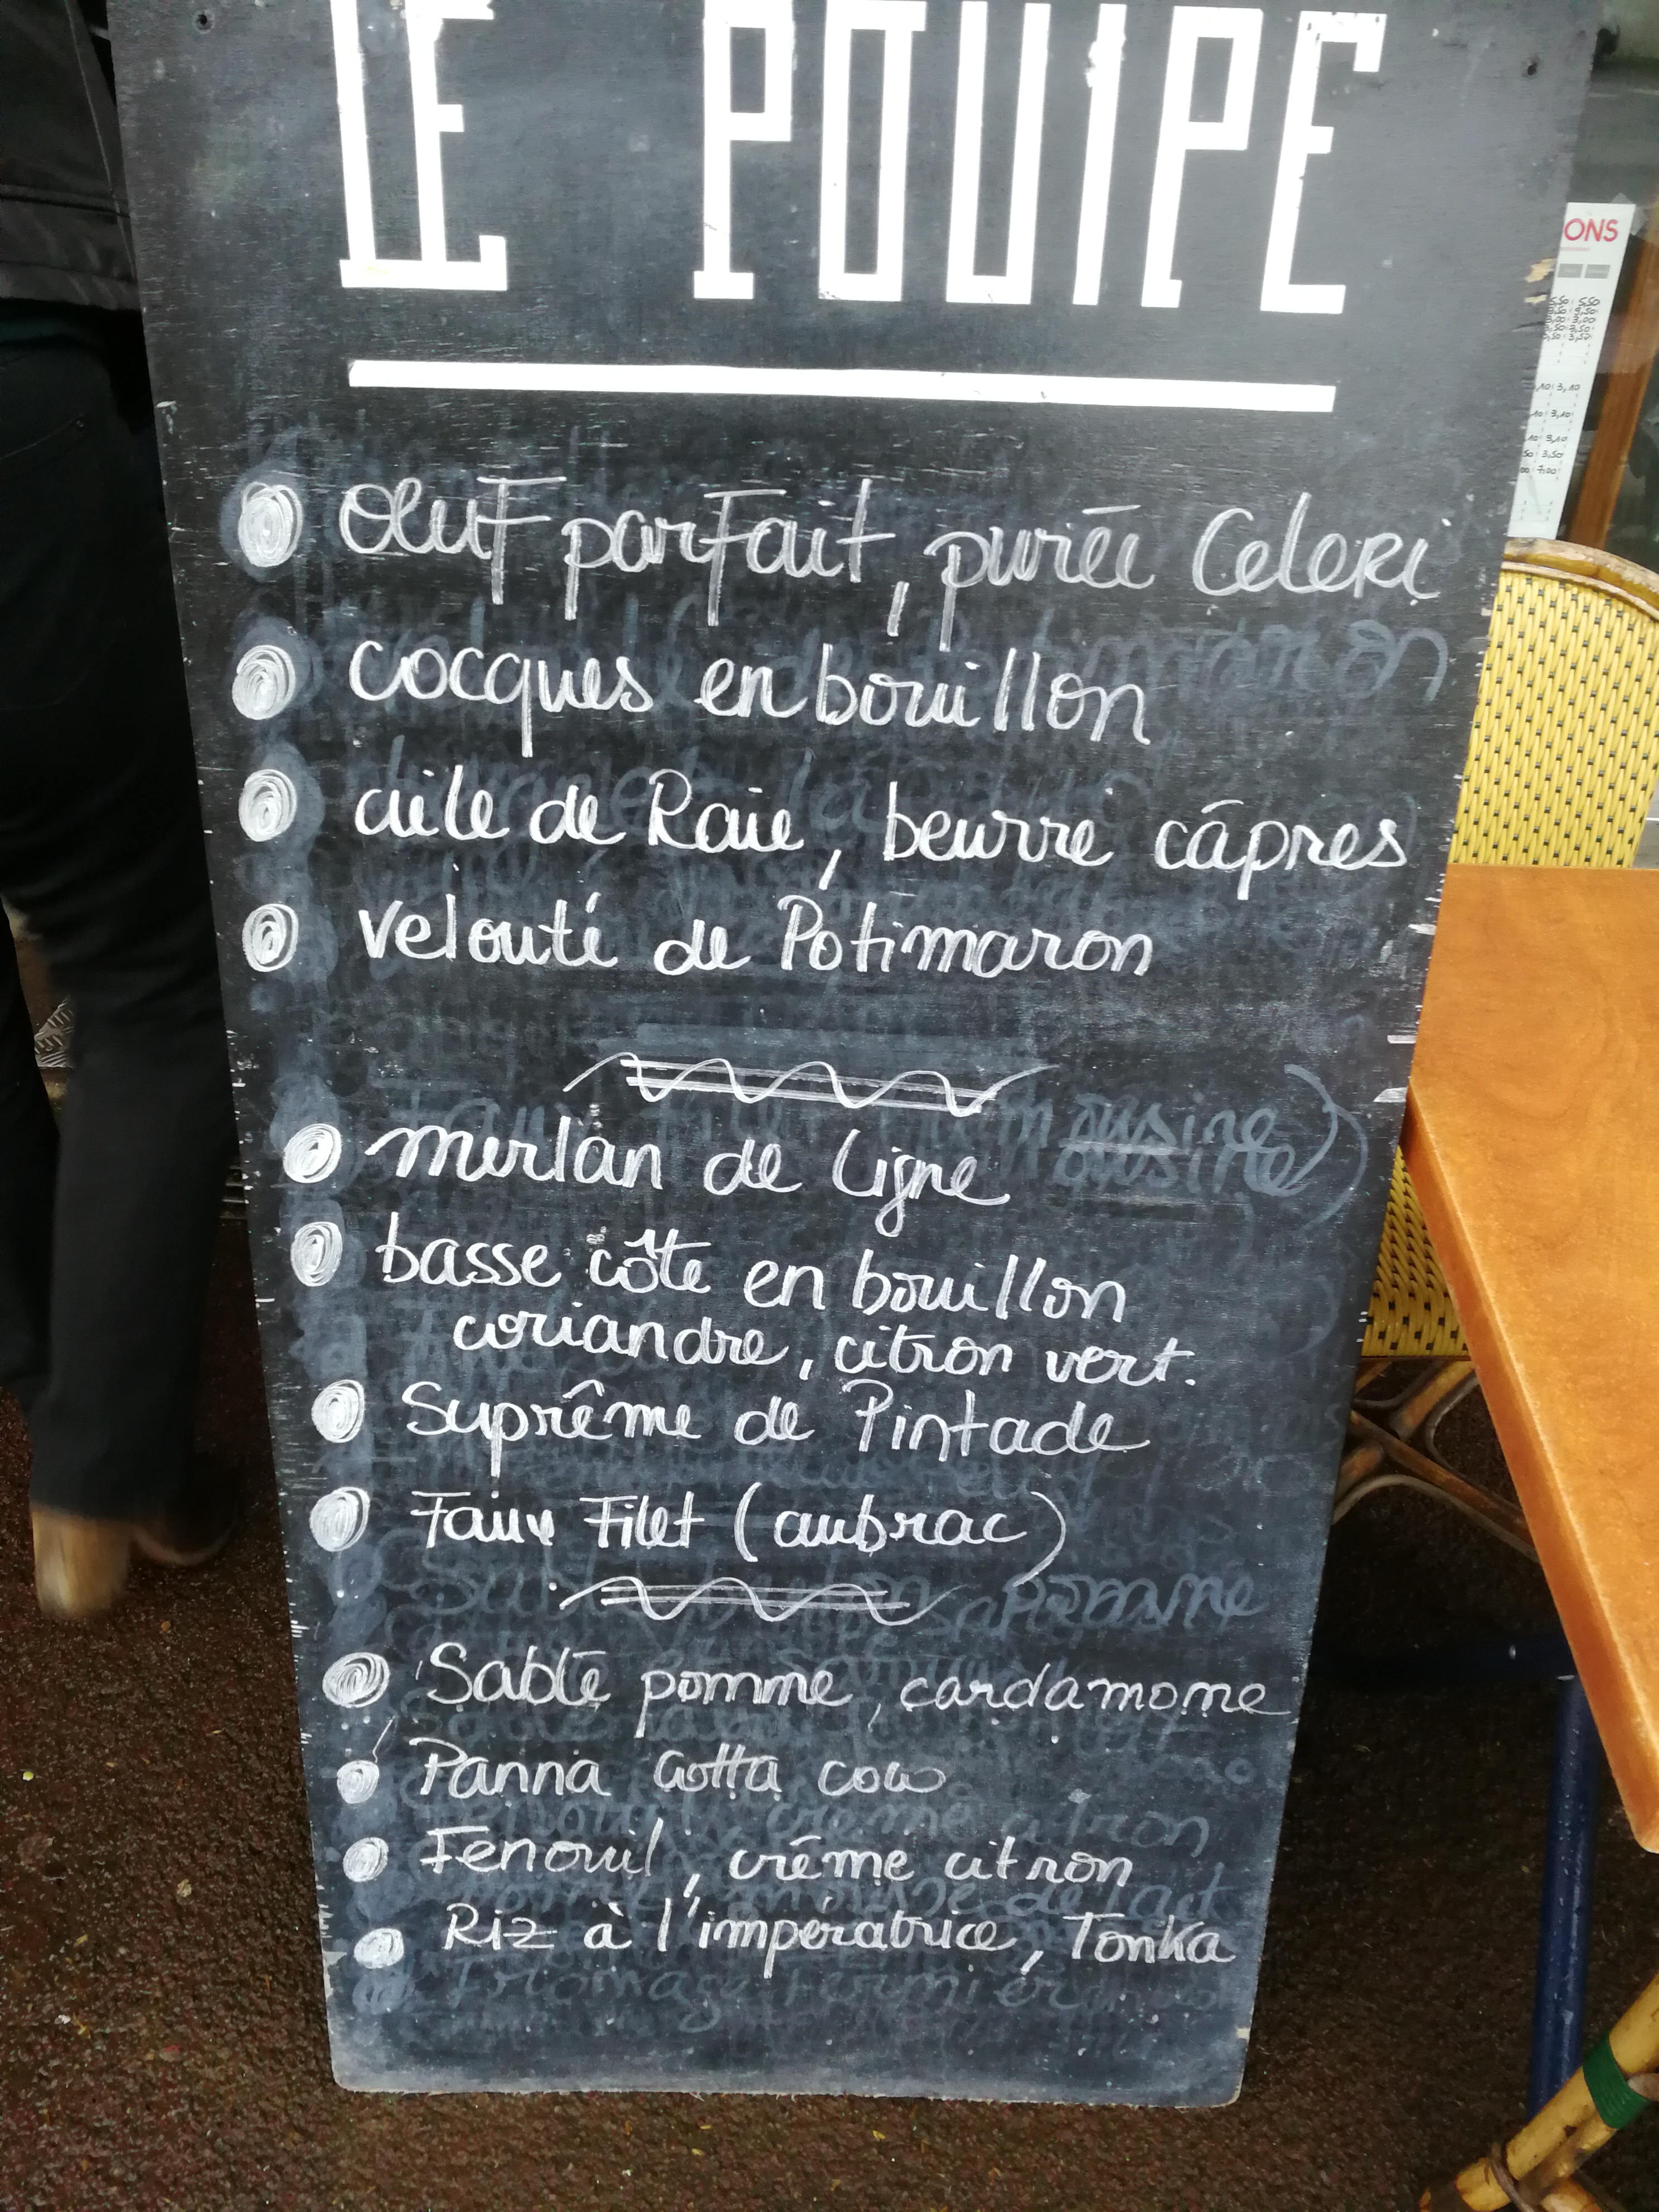 LE POUIPE
oeuf parfait, purée Celeri
cocques en bouillon
aile de Raie, beurre câpres
velouté de Potimaron
merlan de ligne
basse côte en bouillon
coriandre, citron vert.
Suprême de Pintade
Faux Filet (aubrac)
Sablé pomme, cardamome
Panna Cotta coco
Fenouil, créme citron
Riz à l'imperatrice, Tonka
ONS
5,50 5,50
3,00 3,00
3,50 3,50
3,10
3,10
3,10
3,50
7,00